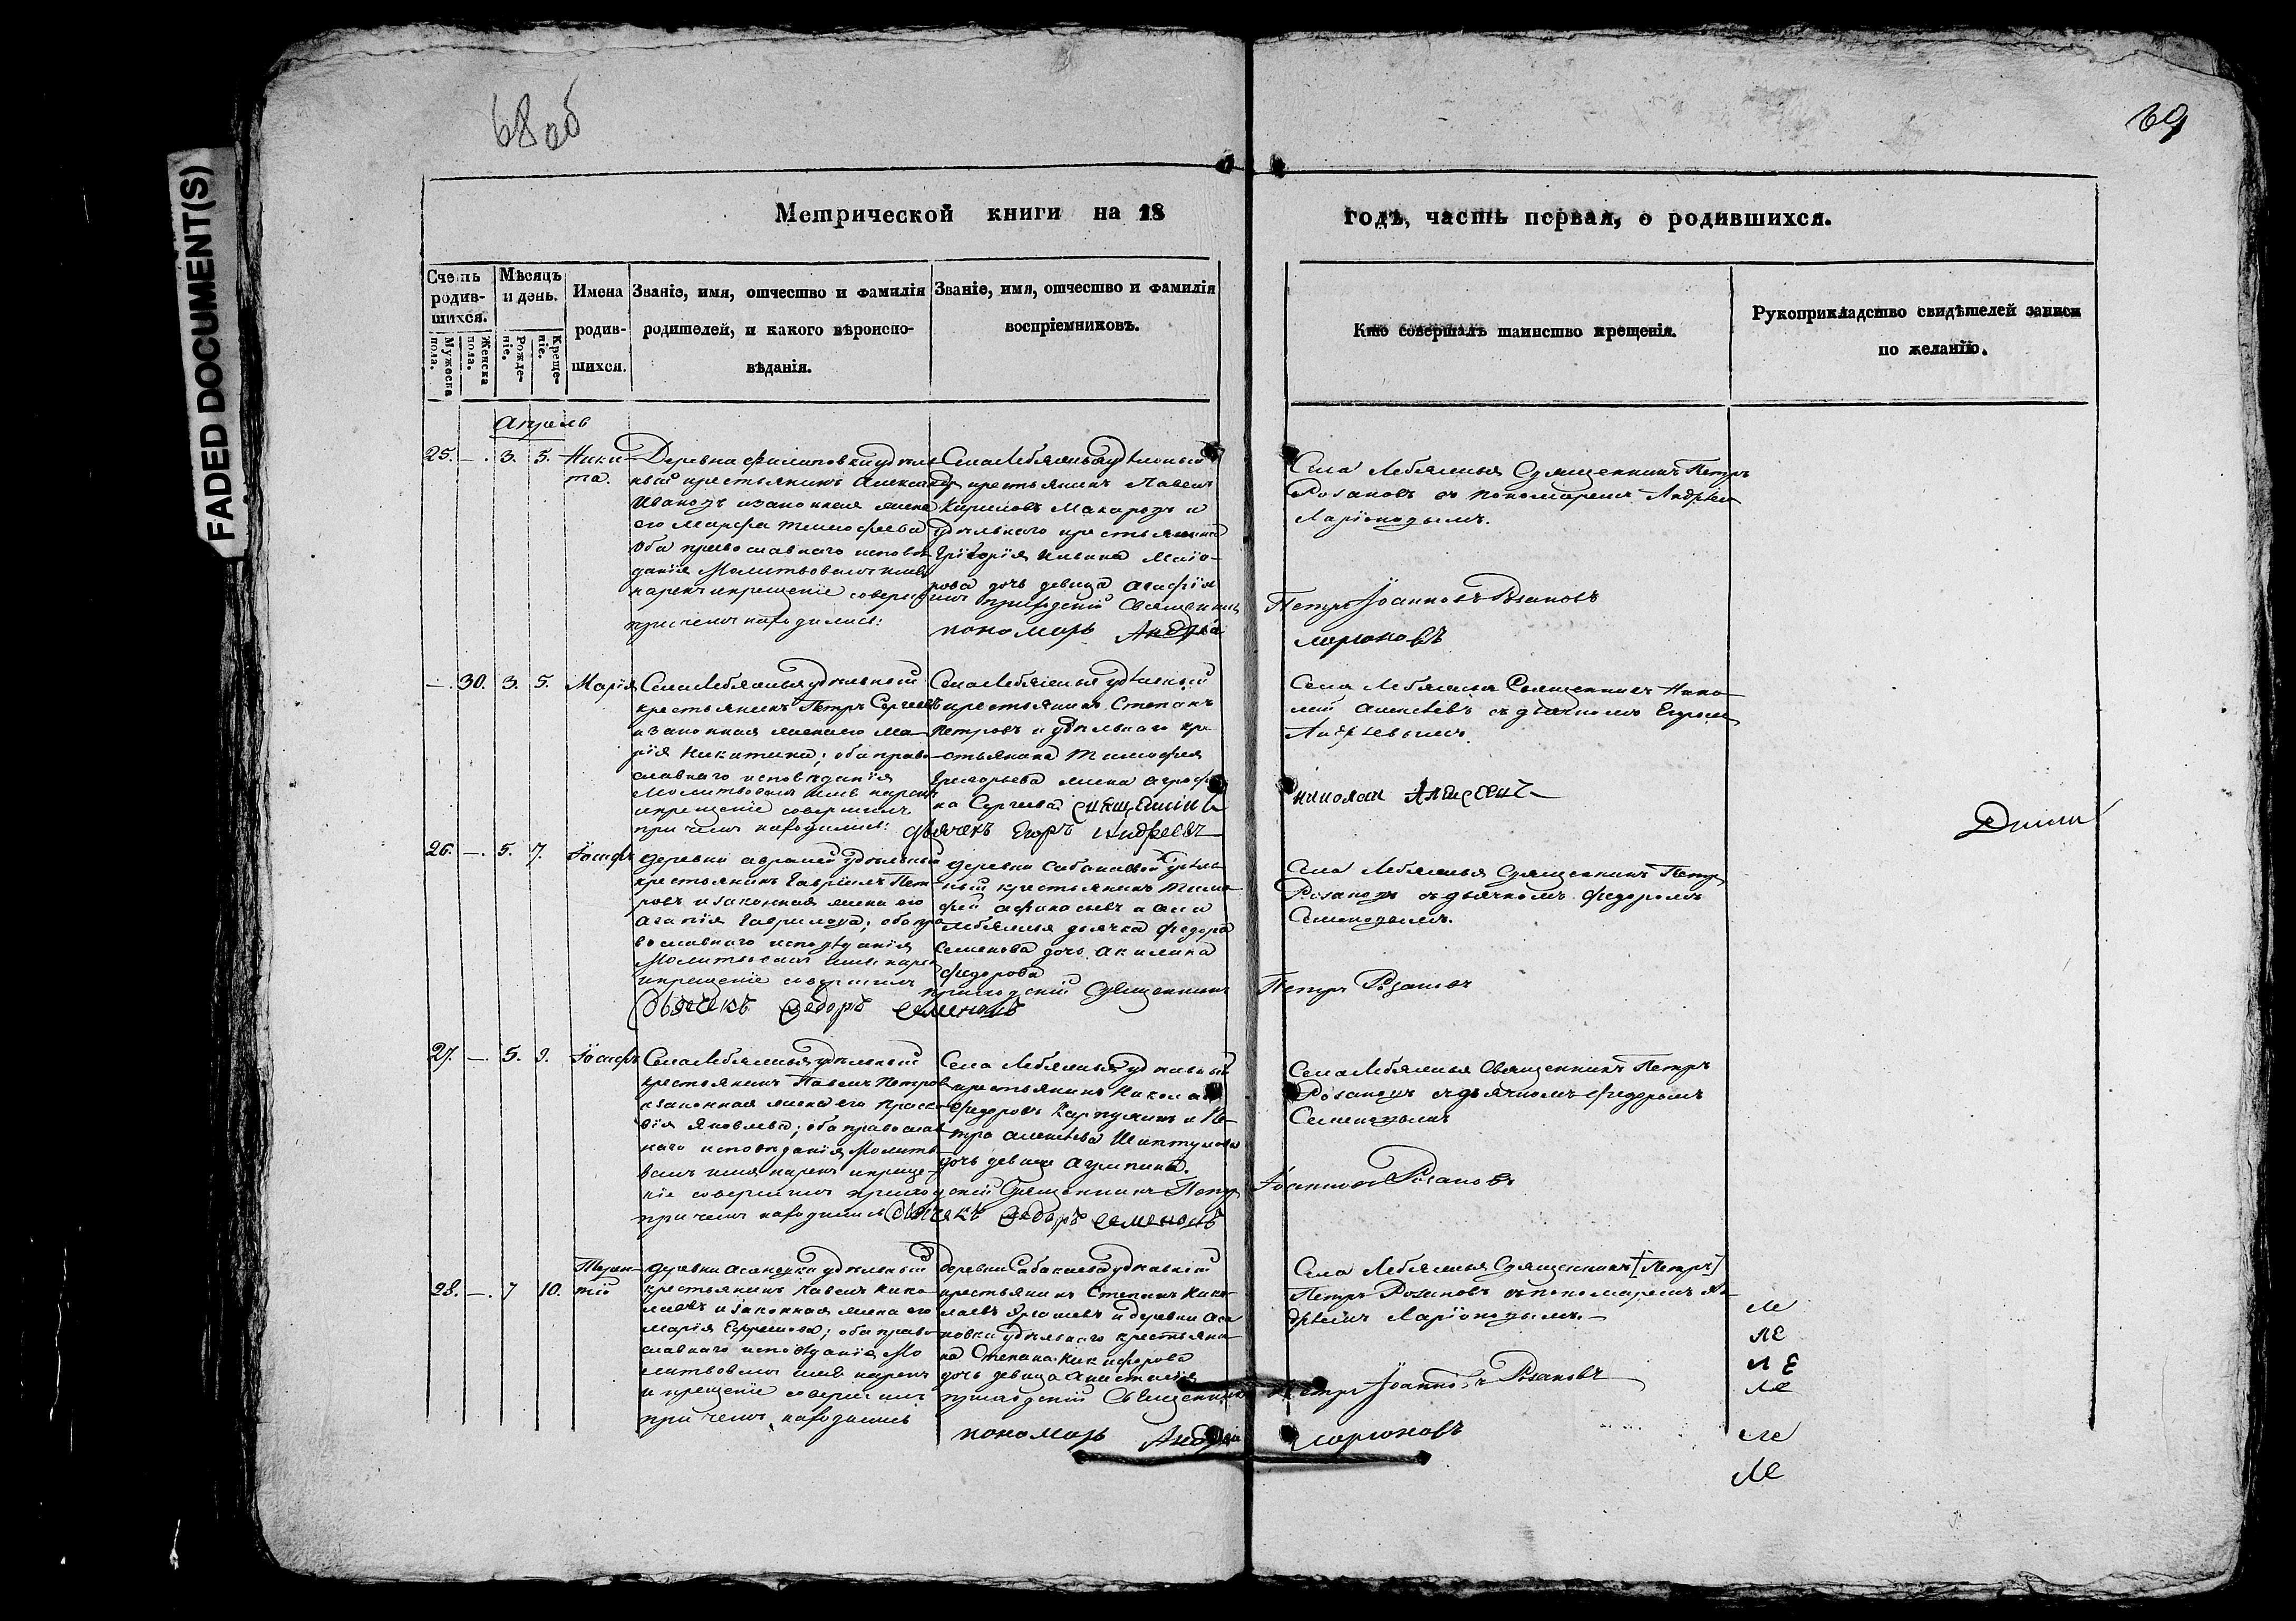 FADED DOCUMENT(S)
68об
69
Метрической книги на 18
годъ, часть первая, о родившихся.
Счетъ родив-шихся.
Мужеска пола.
Женска пола.
Мѣсяцъ и день.
Рожде-ніе.
Креще-ніе.
Имена
родив-
шихся.
Званіе, имя, отчество и фамилія
родителей, и какого вѣроиспо-
вѣданія.
Званіе, имя, отчество и фамилія
воспріемниковъ.
Кто совершалъ таинство крещенія.
Рукоприкладство свидѣтелей записи
по желанію.
Апрель
25. — 3. 5. Ники-
та.
Деревни Филиповки удѣль-
ный крестьянинъ Александръ
Ивановъ и законная жена
его Марфа Тимофеева
оба православнаго исповѣ-
данія Молитвовалъ имя
нарекъ и крещеніе совершилъ
при чемъ находились:
Села Лебяжья удѣльный
крестьянинъ Павелъ
Кириловъ Макаровъ и
удѣльнаго крестьянина
Григорія Ильина
дочь девица Агафія
приходскій Священникъ
пономарь Андрей
Села Лебяжья Священникъ Петръ
Розановъ съ пономаремъ Андреем
Ларіоновымъ.
Петръ Іоанновъ Розановъ
Ларионовъ
— 30. 3. 5. Марія
Села Лебяжья удѣльный
крестьянинъ Петръ Сергеевъ
и законная жена его Ма-
рія Никитина; оба право-
славнаго исповѣданія
Молитвовалъ имя нарекъ
и крещеніе совершилъ
при чемъ находились:
Села Лебяжья удѣльный
крестьянинъ Степанъ
Петровъ и удѣльнаго кре-
стьянина Тимофея
Григорьева жена
на Сергеева Священникъ
дьячекъ Егоръ Андреевъ
Села Лебяжья Священникъ Нико-
лай Алексѣевъ съ дьячкомъ Егором
Андреевымъ.
Николай Алексеевъ
26. — 5. 7. Іосифъ
деревни удѣльный
крестьянинъ Гавріилъ Пет-
ровъ и законная жена его
Агапія Гаврилова; оба пра-
вославнаго исповѣданія
Молитвовалъ имя нарекъ
и крещеніе совершилъ
деревни Сабакаевой удѣль-
ный крестьянинъ Тимо-
фей Афанасьевъ и села
Лебяжья дьячка Федора
Семенова дочь Акилина
Федорова
приходскій Священникъ
Дьячекъ Федоръ Семеновъ
Села Лебяжья Священникъ Петр
Розановъ съ дьячкомъ Федоромъ
Семеновымъ.
Петръ Розановъ
27. — 5. 9. Іосифъ
Села Лебяжья удѣльный
крестьянинъ Павелъ Петров
и законная жена его Праско-
вія Яковлева; оба православ-
наго исповѣданія Молитво-
валъ имя нарекъ и креще-
ніе совершилъ приходскій Священникъ Петр
при чемъ находились Дьячекъ Федоръ Семеновъ
Села Лебяжья удѣльный
крестьянинъ Николай
Федоровъ Карпухинъ и Пе-
тра Алексѣева
дочь девица Агрипина.
Села Лебяжья Священникъ Петръ
Розановъ съ дьячкомъ Федоромъ
Семеновымъ
Іоанновъ Розановъ
28. — 7 10. Терен-
тій
деревни Асановки удѣльный
крестьянинъ Павелъ Нико-
лаевъ и законная жена его
Марія Ефремова; оба право-
славнаго исповѣданія Мо-
литвовалъ имя нарекъ
и крещеніе совершилъ
при чемъ находились
деревни Сабакаева удѣльный
крестьянинъ Степанъ Нико-
лаевъ и деревни Аса-
новки удѣльнаго крестьяни-
на Степана Никифорова
дочь девица Анастасія
приходскій Священникъ
пономарь Андрей
Села Лебяжья Священникъ [Петръ]
Петръ Розановъ съ пономаремъ Ан-
дреемъ Ларіоновымъ.
Петръ Іоанновъ Розановъ
Ларионовъ